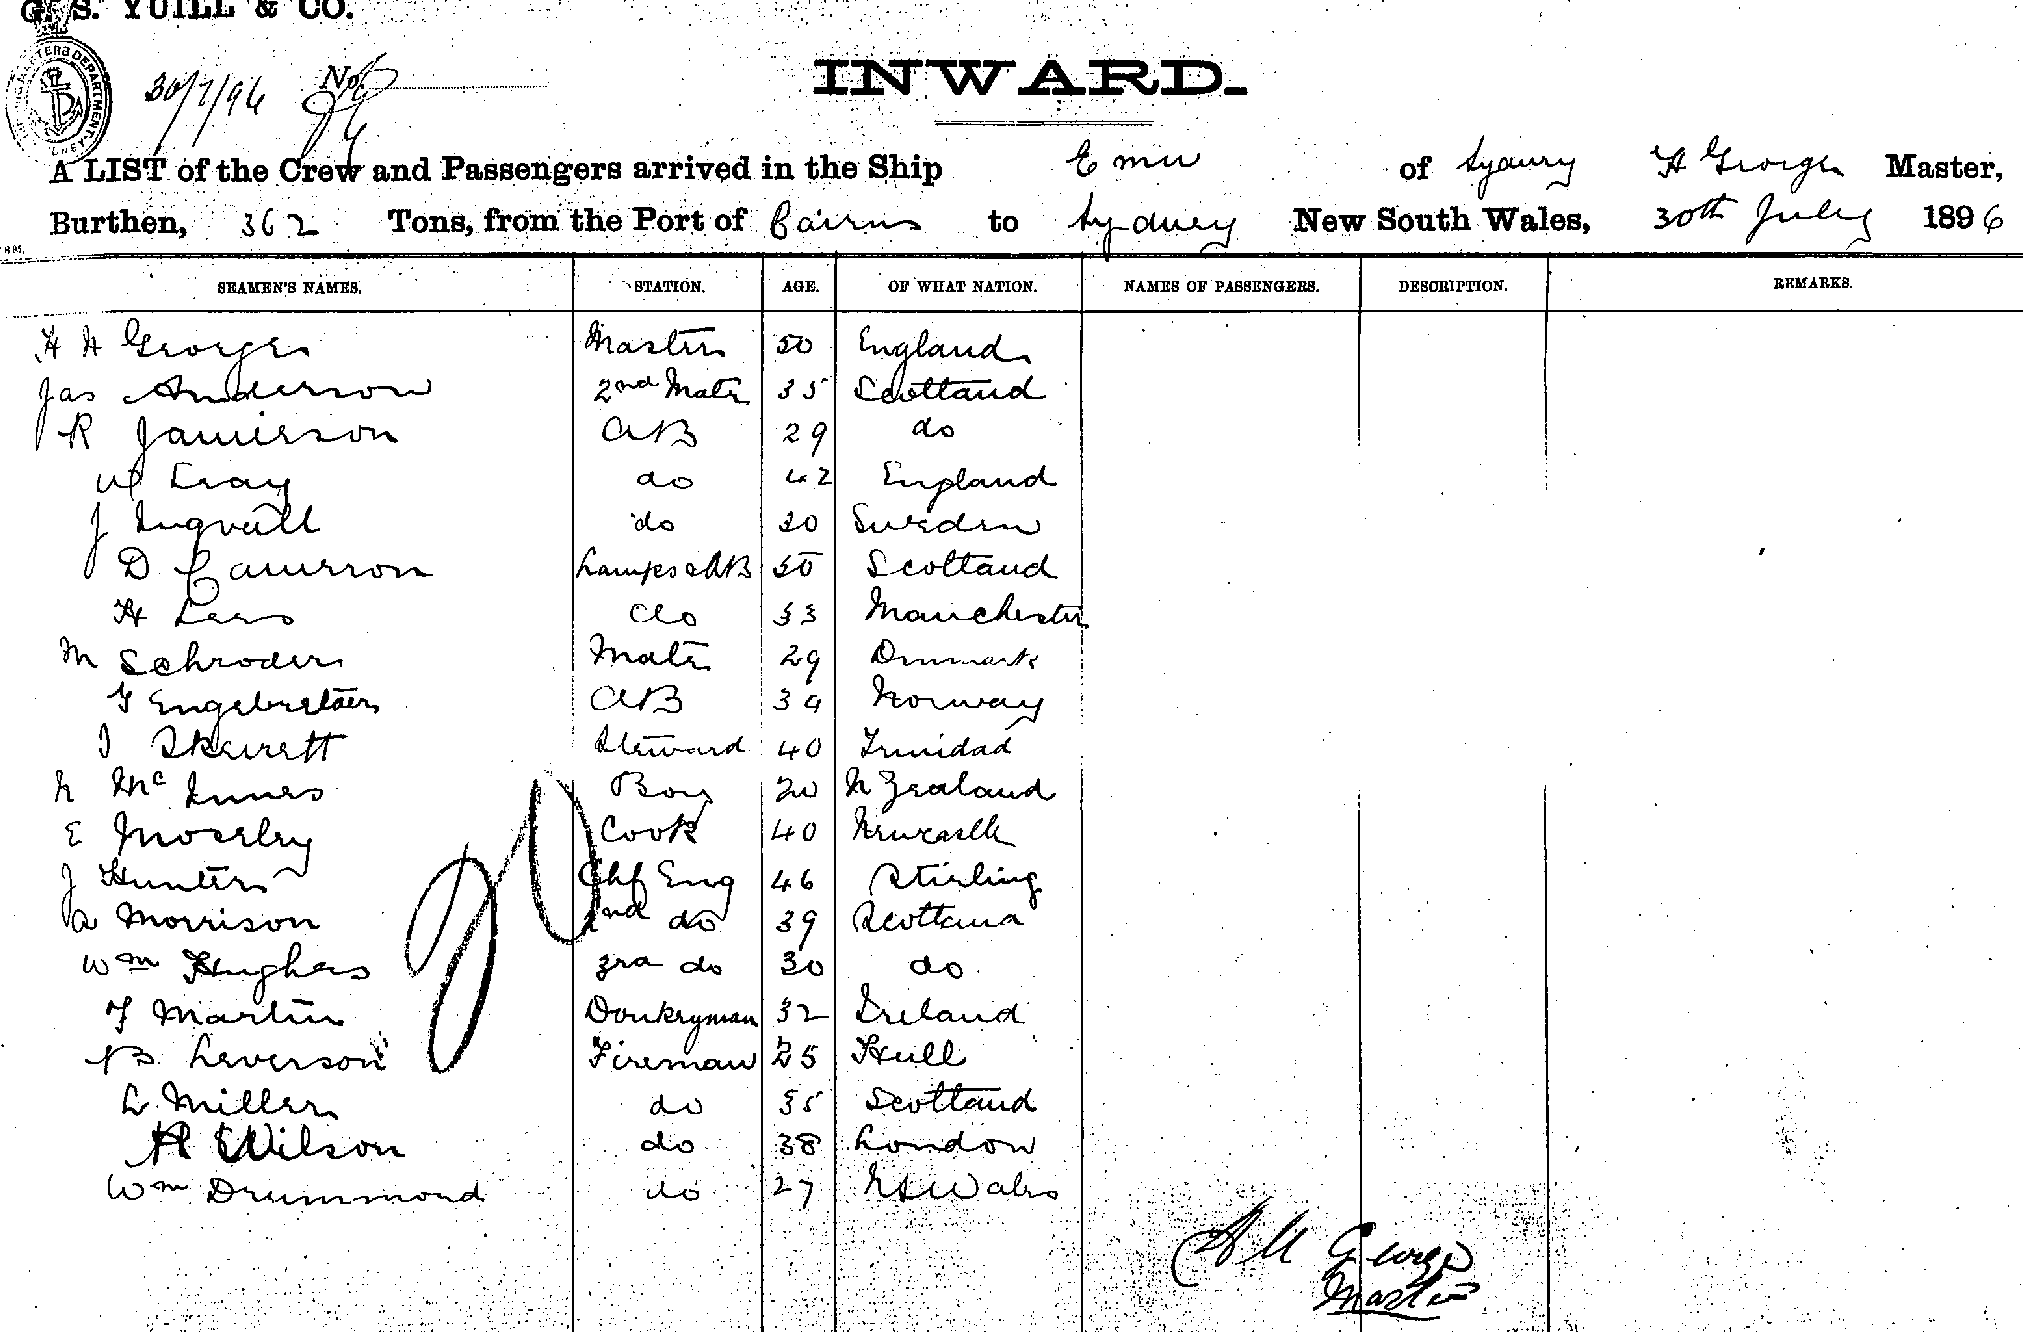 G. S. YUILL & CO.
30/7/96 No.
INWARD.
A LIST of the Crew and Passengers arrived in the Ship Emu of Sydney H George Master,
Burthen, 362 Tons, from the Port of Cairns to Sydney New South Wales, 30th July 1896
SEAMEN'S NAMES. STATION. AGE. OF WHAT NATION. NAMES OF PASSENGERS. DESCRIPTION. REMARKS.
H H George Master 50 England
Jas Anderson 2nd Mate 35 Scotland
R Jamieson AB 29 do
W Gray do 42 England
J Ingvall do 30 Sweden
D Cameron Lamps & AB 50 Scotland
H Lees do 33 Manchester
M Schroder Mate 29 Denmark
F Engebretsen AB 34 Norway
J Skerrett Steward 40 Trinidad
N McInnes Boy 20 N Zealand
E Moseley Cook 40 Newcastle
J Hunter Chf Eng 46 Stirling
A Morrison 2nd do 39 Scotland
Wm Hughes 3rd do 30 do
F Martin Donkeyman 32 Ireland
B. Leverson Fireman 25 Hull
L Miller do 35 Scotland
H Wilson do 38 London
Wm Drummond do 27 N S Wales
George
Master